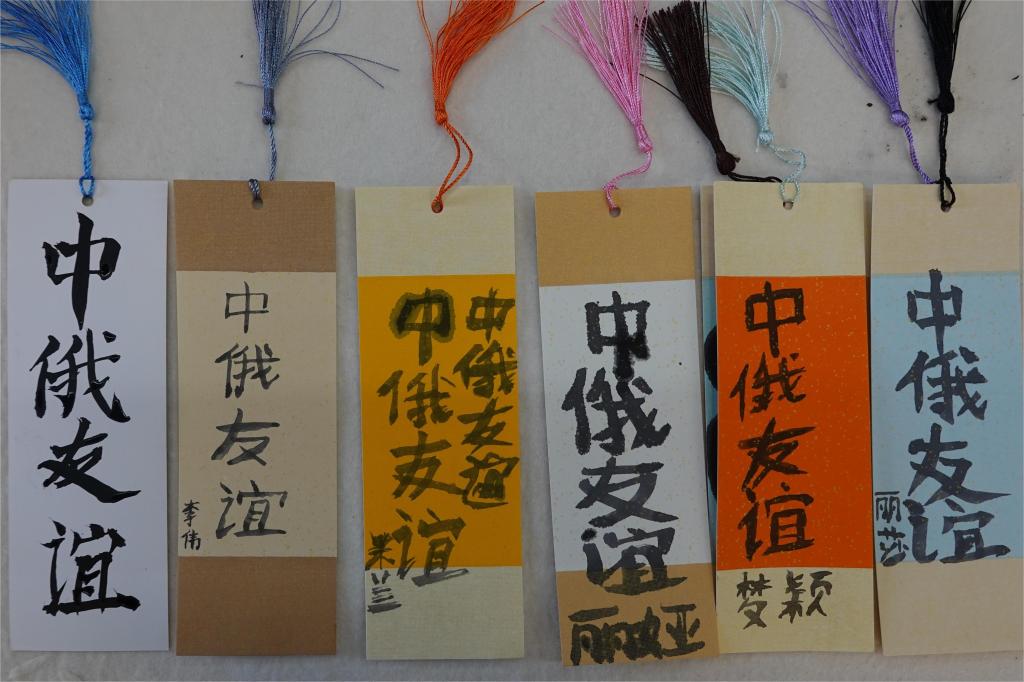 中俄友谊
中俄友谊
李伟
中俄友谊
中俄友谊
米兰
中俄友谊
丽娅
中俄友谊
梦颖
中俄友谊
丽莎